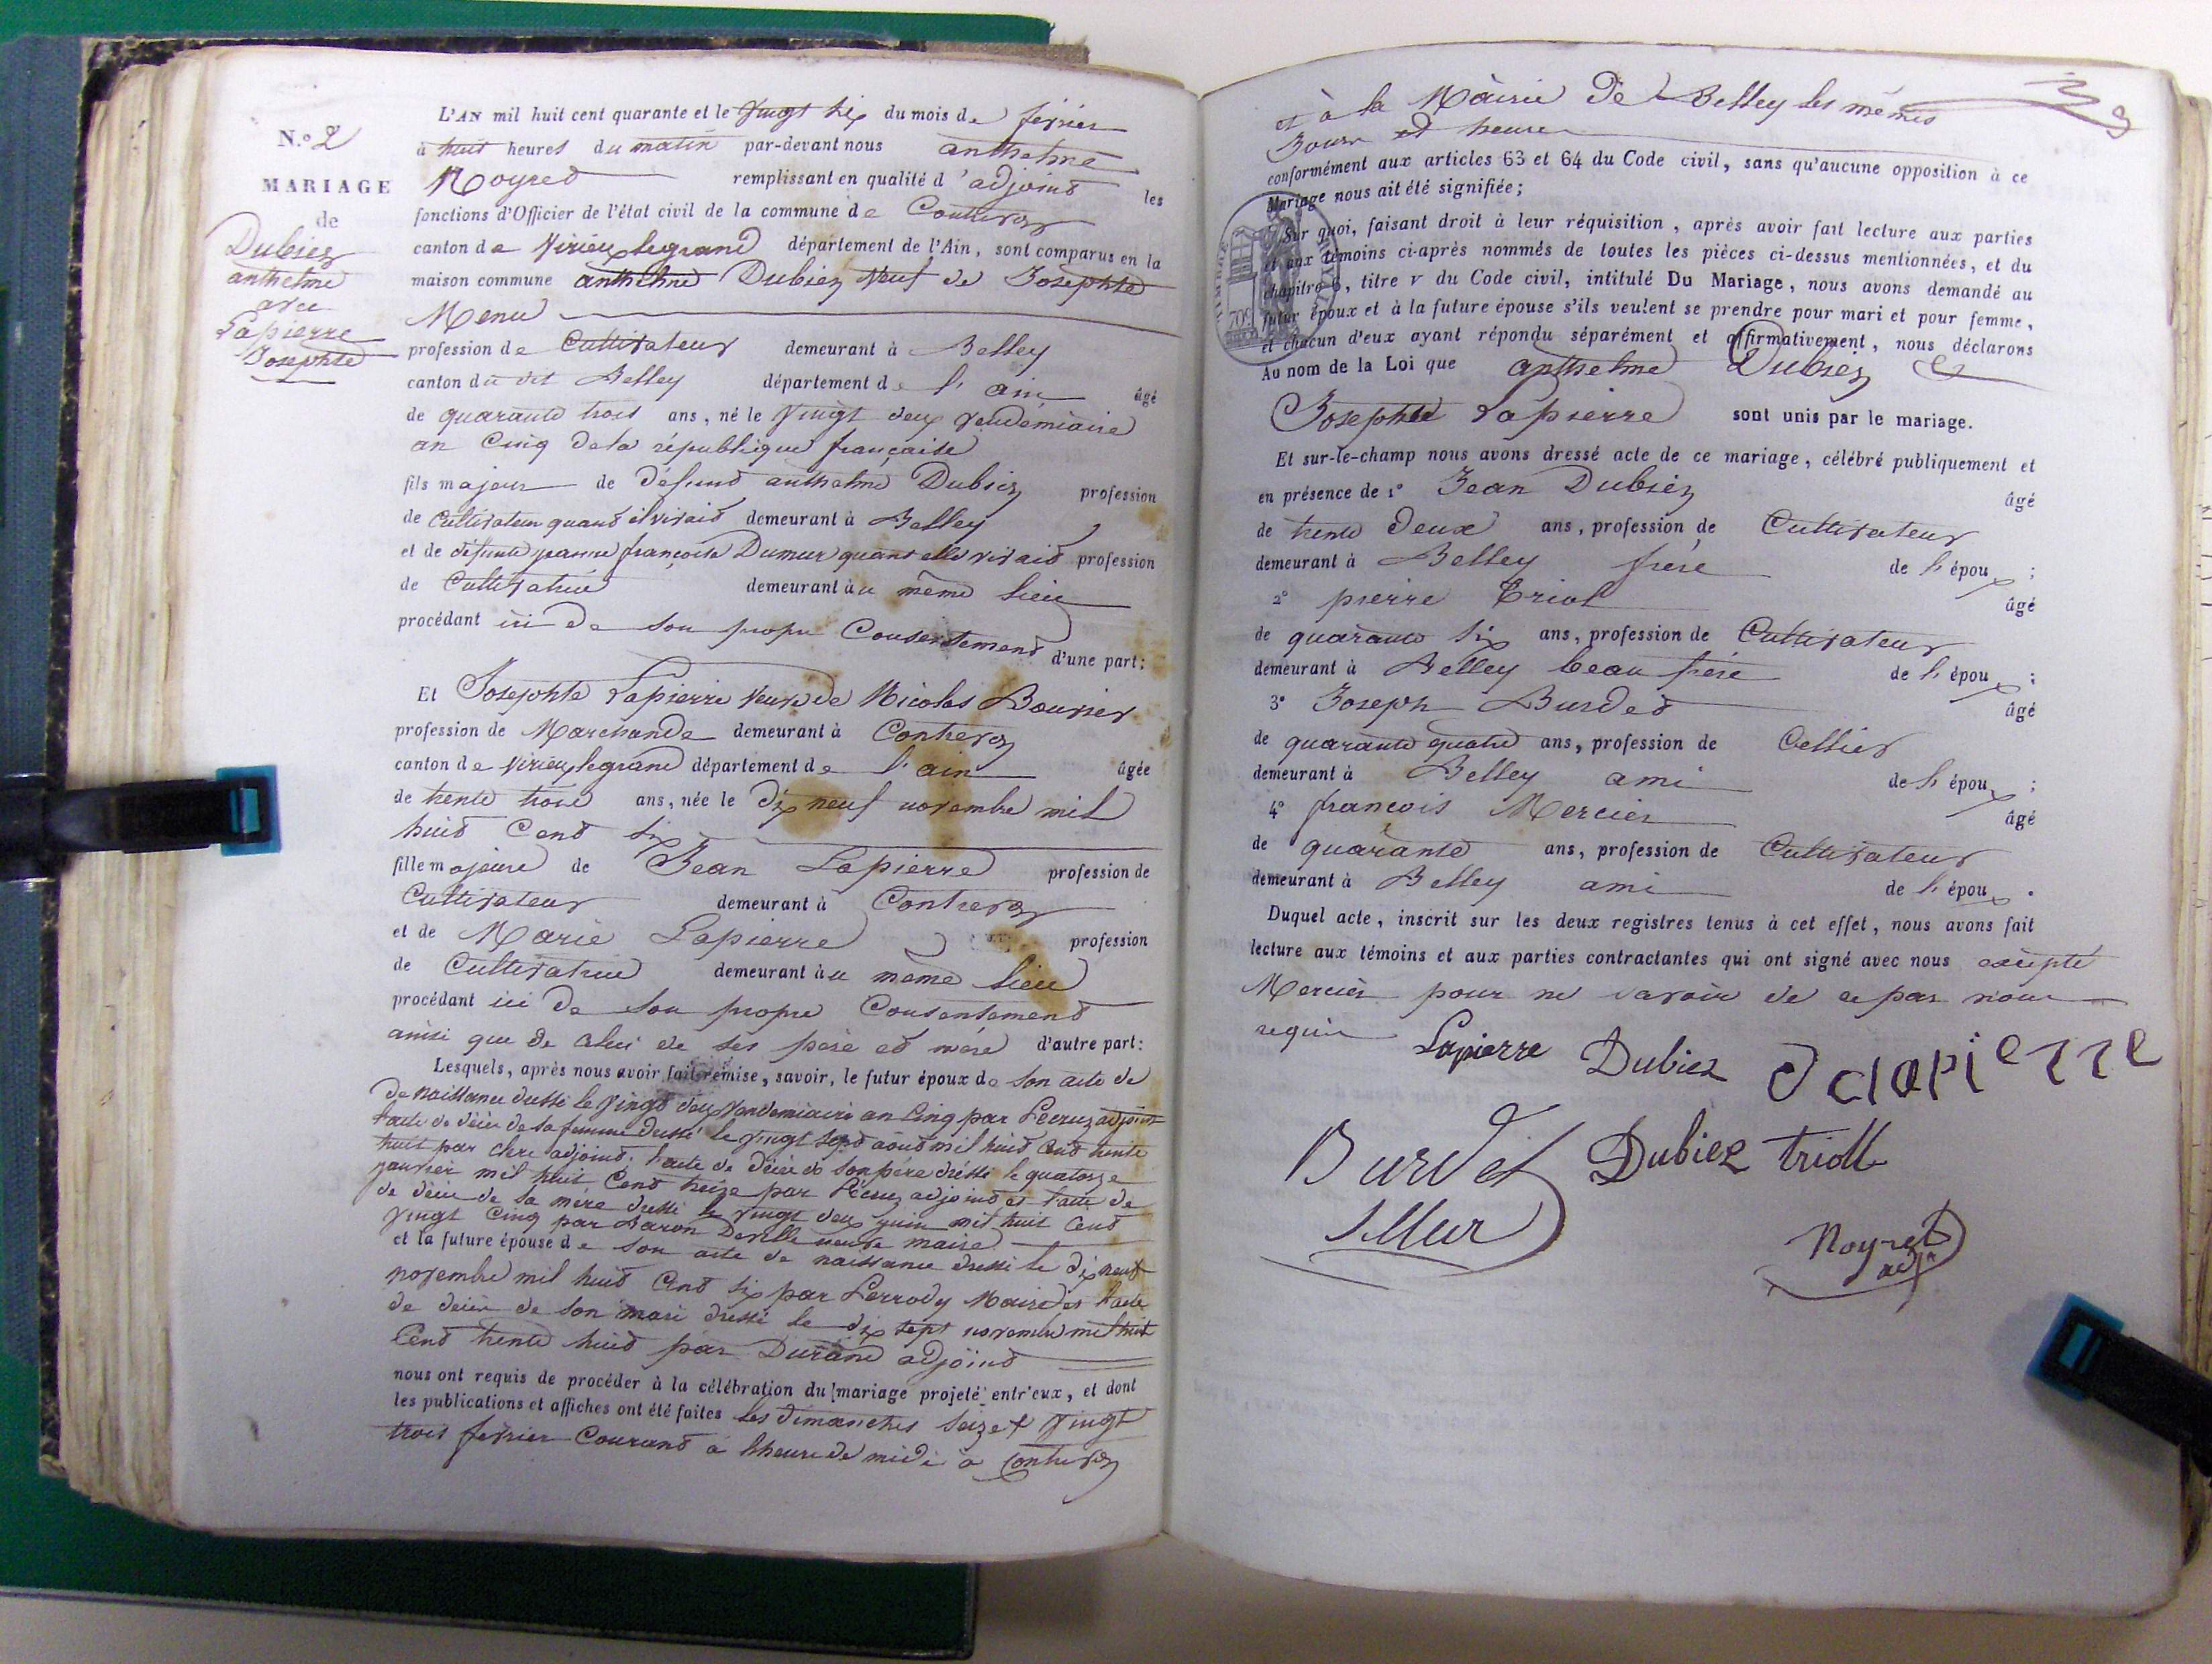 N.º 2
MARIAGE
de
Dubiez
anthelme
avec
Lapierre
Josephte
L'AN mil huit cent quarante et le vingt six du mois de février
à huit heures du matin par-devant nous anthelme
Noyret remplissant en qualité d'adjoint les
fonctions d'Officier de l'état civil de la commune de Contrevoz
canton de Virieu legrand département de l'Ain, sont comparus en la
maison commune anthelme Dubiez veuf de Josephte
Menu
profession de Cultivateur demeurant à Belley
canton du dit Belley département de l'ain âgé
de quarante trois ans, né le vingt deux vendémiaire
an Cinq de la république française
fils majeur de défunt anthelme Dubiez profession
de Cultivateur quand il vivait demeurant à Belley
et de défunte jeanne françoise Dumur quant elle vivait profession
de Cultivatrice demeurant au même lieu
procédant ici de son propre Consentement d'une part;
Et Josephte Lapierre veuve de Nicolas Bouvier
profession de Marchande demeurant à Contrevoz
canton de Virieu legrand département de l'ain âgée
de trente trois ans, née le dix neuf novembre mil
huit Cent six
fille majeure de Jean Lapierre profession de
Cultivateur demeurant à Contrevoz
et de Marie Lapierre profession
de Cultivatrice demeurant au même lieu
procédant ici de son propre Consentement
ainsi que de celui de ses père et mère d'autre part:
Lesquels, après nous avoir fait remise, savoir, le futur époux de son acte de
de naissance dressé le vingt deux vendemiaire an Cinq par adjoint
l'acte de décès de sa femme dressé le vingt sept août mil huit Cent trente
huit par Clerc adjoint. l'acte de décès de son père dressé le quatorze
janvier mil huit Cent treize par adjoint et l'acte de
de décès de sa mère dressé le vingt deux juin mil huit Cent
vingt Cinq par Baron maire
et la future épouse de son acte de naissance dressé le dix neuf
novembre mil huit Cent six par Perrody Maire et l'acte
de décès de son mari dressé le dix sept novembre mil huit
Cent trente huit par Durand adjoint
nous ont requis de procéder à la célébration du mariage projeté entr'eux, et dont
les publications et affiches ont été faites les dimanches seize et vingt
trois février Courant à l'heure de midi à Contrevoz
et à la Mairie de Belley les mêmes
Jours et heures
conformément aux articles 63 et 64 du Code civil, sans qu'aucune opposition à ce
Mariage nous ait été signifiée;
Sur quoi, faisant droit à leur réquisition, après avoir fait lecture aux parties
et aux témoins ci-après nommés de toutes les pièces ci-dessus mentionnées, et du
chapitre 6, titre V du Code civil, intitulé Du Mariage, nous avons demandé au
futur époux et à la future épouse s'ils veulent se prendre pour mari et pour femme,
et chacun d'eux ayant répondu séparément et affirmativement, nous déclarons
Au nom de la Loi que anthelme Dubiez et
Josephte Lapierre sont unis par le mariage.
Et sur-le-champ nous avons dressé acte de ce mariage, célébré publiquement et
en présence de 1º Jean Dubiez âgé
de trente deux ans, profession de Cultivateur
demeurant à Belley frère de l'époux;
2º pierre Triol âgé
de quarante six ans, profession de Cultivateur
demeurant à Belley beau frère de l'époux;
3º Joseph Burdet âgé
de quarante quatre ans, profession de Cellier
demeurant à Belley ami de l'époux;
4º francois Mercier âgé
de quarante ans, profession de Cultivateur
demeurant à Belley ami de l'époux.
Duquel acte, inscrit sur les deux registres tenus à cet effet, nous avons fait
lecture aux témoins et aux parties contractantes qui ont signé avec nous excepté
Mercier pour ne savoir de ce par nous
requis
Lapierre Dubiez J lapierre
Burdet Dubiez triolle
Sellier
Noyret
adj
TIMBRE ROYAL